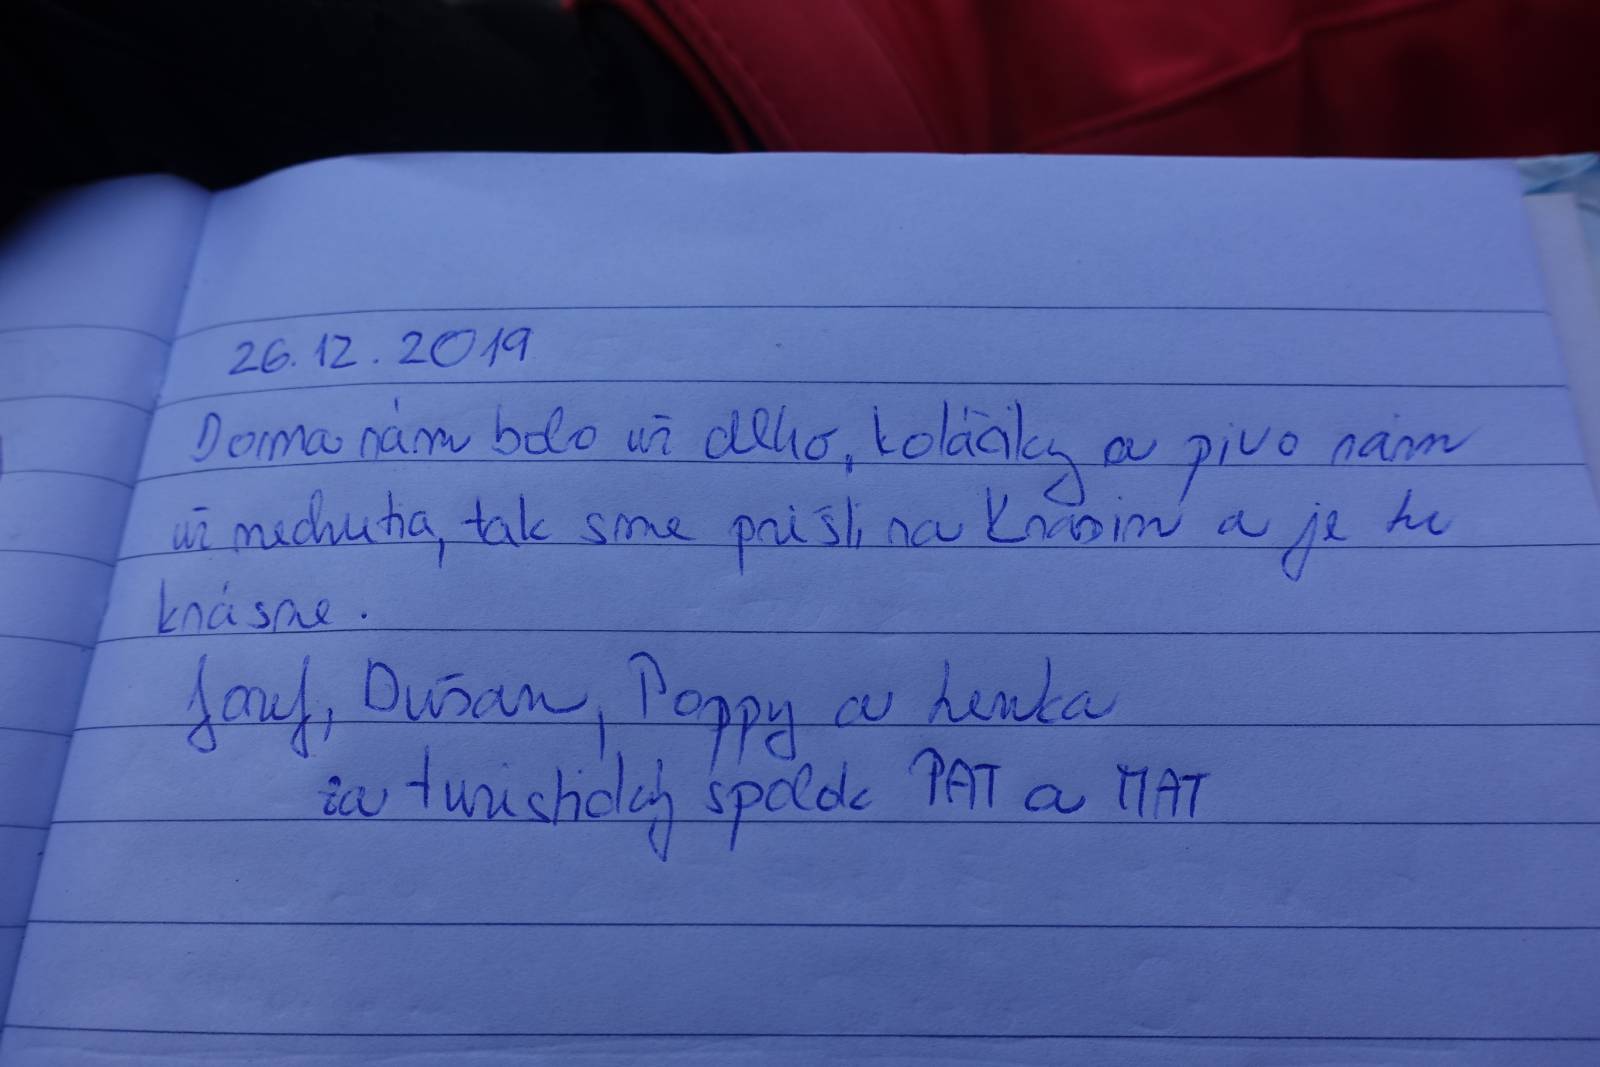 26.12.2019
Doma nám bolo už dlho, koláčiky a pivo nám
už nechutia, tak sme prišli na Krásin a je tu
krásne.
Jozef, Dušan, Poppy a Lenka
za turistický spolok PAT a MAT